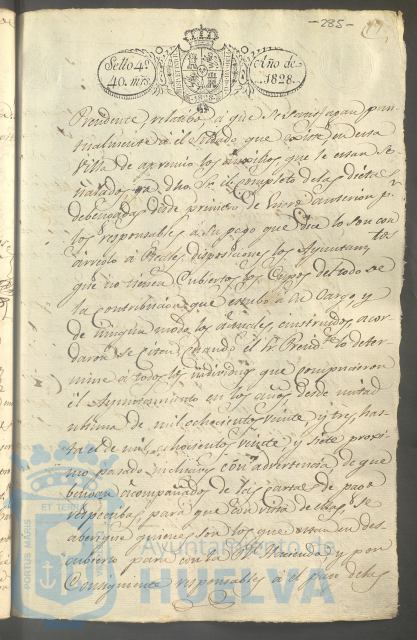 -285-
Sello 4º
40. mrs
Año de
1828.
Presidente, relativo á que se satisfagan pun-
tualmente á el Soldado que existe en esta
Villa de apremio los auxilios que le estan se-
ñalados y a dho. Sr. el completo de las dietas
debengadas desde primero de Enero anterior pr.
los responsables a su pago que dice lo son con
arreglo a Reales disposiciones los Ayuntamtos.
que no tienen Cubiertos los Cupos del todo de
la contribucion que estubo a su Cargo, y
de ningun modo los actuales, enterados, acor-
daron se citen quando el Sr. Presidte. lo deter-
mine á todos los individuos que compusieron
el Ayuntamiento en los años desde mitad
ultima de mil ochocientos veinte y tres has-
ta el de mil ochocientos veinte y siete proxi-
mo pasado inclusive con advertencia de que
bengan acompañados de las Cartas de pago
respectibas para que con vista de ellas, se
aberigue quienes son los que estan en des-
cubierto para con la Rl. Hacienda y por
Consiguiente responsables á el pago de las
PORTUS MARIS
ET TERRAE
Ayuntamiento de
HUELVA